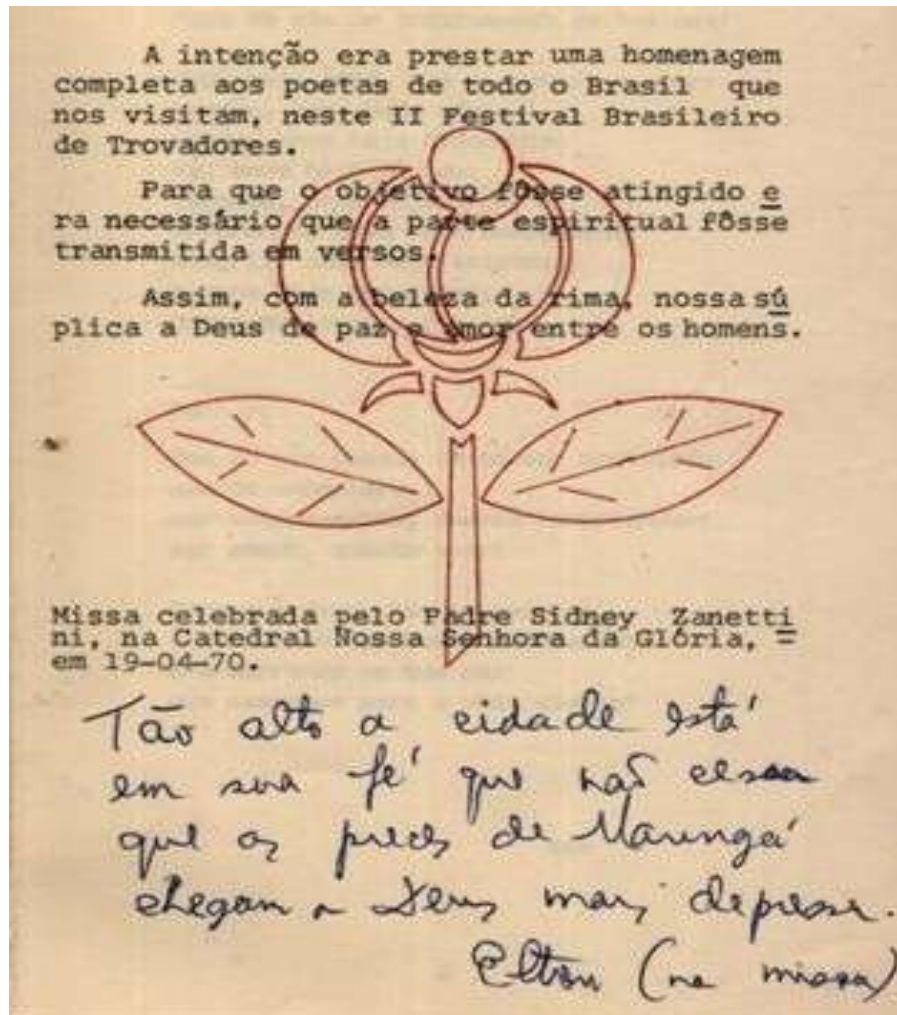 A intenção era prestar uma homenagem
completa aos poetas de todo o Brasil que
nos visitam, neste II Festival Brasileiro
de Trovadores.
Para que o objetivo fôsse atingido e
ra necessário que a parte espiritual fôsse
transmitida em versos.
Assim, com a beleza da rima, nossa sú
plica a Deus de paz e amor entre os homens.
Missa celebrada pelo Padre Sidney Zanetti
ni, na Catedral Nossa Senhora da Glória, =
em 19-04-70.
Tão alto a cidade está
em sua fé que não cessa
que as preces de Maringá
chegam a Deus mais depressa.
Elton (na missa)